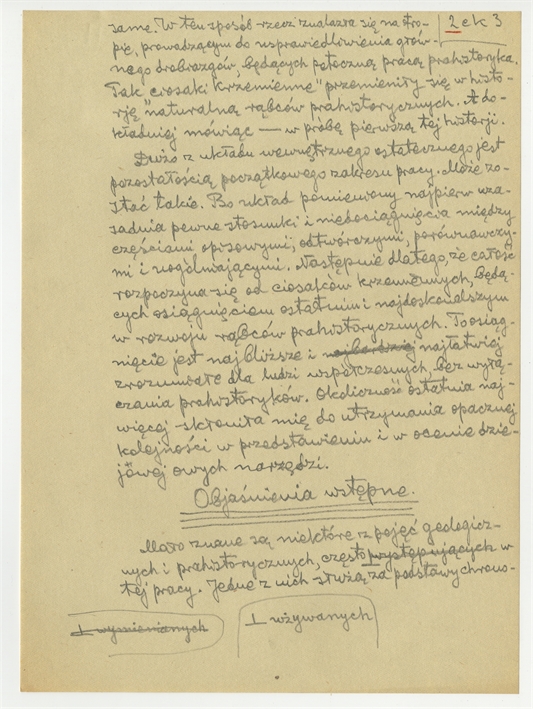 2 ek 3
same. W ten sposób rzecz znalazła się na stro-
pię, prowadzącym do usprawiedliwienia głów-
nego drobiazgów, będących półoczną pracą prahistoryka.
Tak „ciosaki krzemienne" przemieniły się w histo-
rję „naturalną rąbców prahistorycznych. A do-
kładniej mówiąc — w próbę pierwszą tej historji.
Dużo z układu wewnętrznego ostatecznego jest
pozostałością początkowego zakresu pracy. Może zo-
stać takie. Bo układ pomieniony najpierw uza-
sadnia pewne stosunki i niedociągnięcia między
częściami opisowymi, odtwórczymi, porównawczy-
mi i uogólniającymi. Następnie dlatego, że całość
rozpoczyna się od ciosaków krzemiennych, będą-
cych osiągnięciem ostatnim i najdoskonalszym
w rozwoju rąbców prahistorycznych. To osiąg-
nięcie jest najbliższe i najbardziej najłatwiej
zrozumiałe dla ludzi współczesnych, bez wyłą-
czania prahistoryków. Okoliczność ostatnia naj-
więcej skłoniła mię do utrzymania opacznej
kolejności w przedstawieniu i w ocenie dzie-
jowej owych narzędzi.
Objaśnienia wstępne.
Mało znane są niektóre z pojęć geologicz-
nych i prahistorycznych, często występujących w
tej pracy. Jedne z nich służą za podstawy chrono-
⊥ wymienianych
⊥ używanych